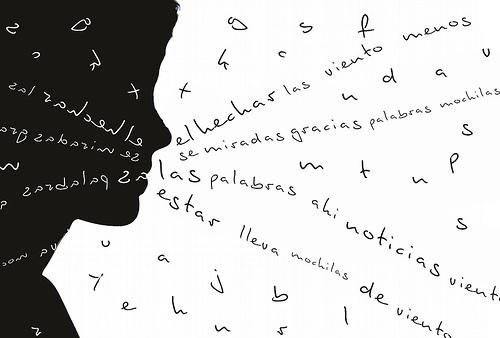 g s f
el hechar las viento menos
k c n d a u
x
se miradas gracias palabras mochilas
s
las palabras m t n p
estar ahi noticias viento
s
lleva mochilas de viento
u a
y j b
e h l
n r